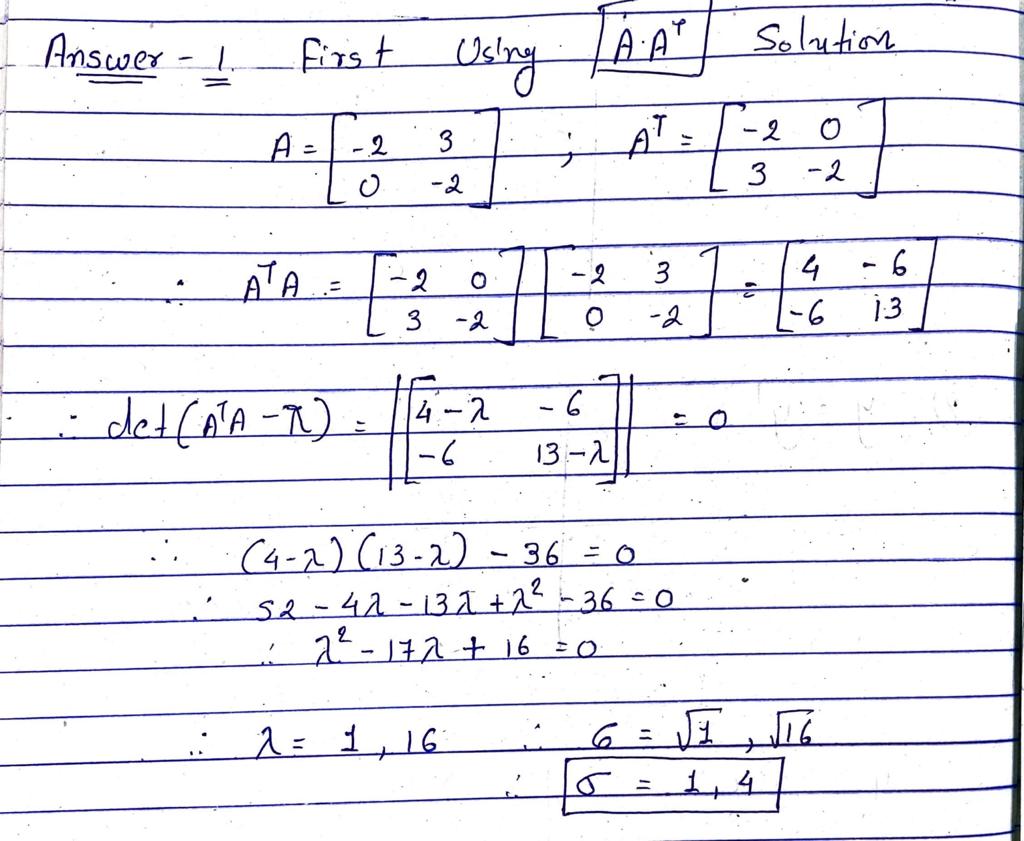 Answer - 1. First Using A·Aᵀ Solution
A = [ -2 3 ; 0 -2 ] ; Aᵀ = [ -2 0 ; 3 -2 ]
∴ AᵀA = [ -2 0 ; 3 -2 ] [ -2 3 ; 0 -2 ] = [ 4 -6 ; -6 13 ]
∴ det(AᵀA - λ) = |[ 4-λ -6 ; -6 13-λ ]| = 0
∴ (4-λ)(13-λ) - 36 = 0
∴ 52 - 4λ - 13λ + λ² - 36 = 0
∴ λ² - 17λ + 16 = 0
∴ λ = 1, 16 ∴ σ = √1, √16
∴ σ = 1, 4